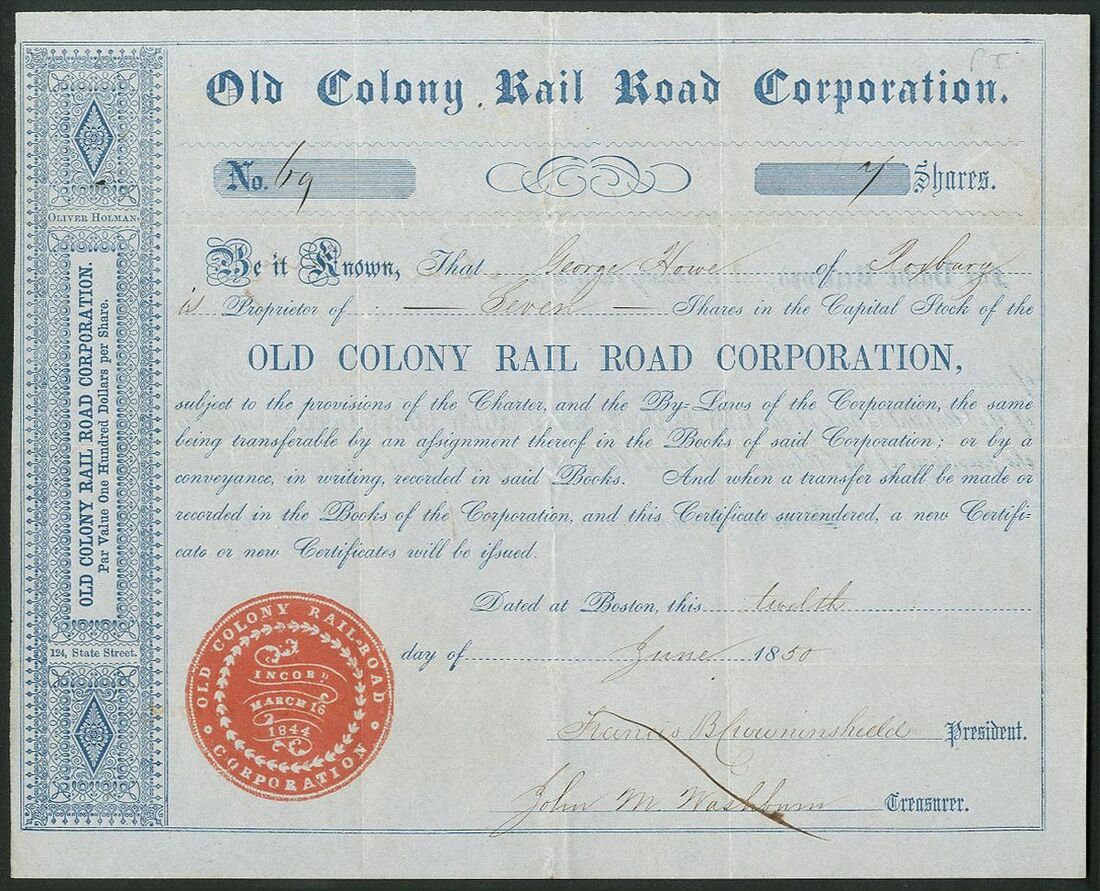 Old Colony Rail Road Corporation.
No. 69
7 Shares.
Be it Known, That George Howe of Roxbury
is Proprietor of — Seven — Shares in the Capital Stock of the
OLD COLONY RAIL ROAD CORPORATION,
subject to the provisions of the Charter, and the By-Laws of the Corporation, the same
being transferable by an aſsignment thereof in the Books of said Corporation; or by a
conveyance, in writing, recorded in said Books. And when a transfer shall be made or
recorded in the Books of the Corporation, and this Certificate surrendered, a new Certifi-
cate or new Certificates will be iſsued.
Dated at Boston, this twelth
day of June 1850
Francis B Crowninshield President.
John M. Washburn Treasurer.
OLIVER HOLMAN.
OLD COLONY RAIL ROAD CORPORATION.
Par Value One Hundred Dollars per Share.
124, State Street.
OLD COLONY RAIL-ROAD
CORPORATION
INCORD
MARCH 16
1844